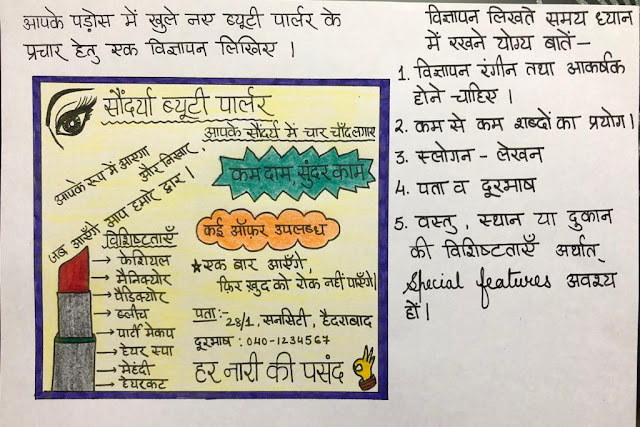 आपके पड़ोस में खुले नए ब्यूटी पार्लर के
प्रचार हेतु एक विज्ञापन लिखिए ।
सौंदर्या ब्यूटी पार्लर
आपके सौंदर्य में चार चाँद लगाए
आपके रूप में आएगा
और निखार,
जब आएँगे आप हमारे द्वार ।
कम दाम, सुंदर काम
कई ऑफर उपलब्ध
विशिष्टताएँ
→ फेशियल
→ मैनिक्योर
→ पैडिक्योर
→ ब्लीच
→ पार्टी मेकप
→ हेयर स्पा
→ मेहंदी
→ हेयरकट
★एक बार आएँगे,
फिर खुद को रोक नहीं पाएँगे|
पता:-
28/1, सनसिटी, हैदराबाद
दूरभाष : 040-1234567
हर नारी की पसंद
विज्ञापन लिखते समय ध्यान
में रखने योग्य बातें-
1. विज्ञापन रंगीन तथा आकर्षक
होने चाहिए ।
2. कम से कम शब्दों का प्रयोग ।
3. स्लोगन - लेखन
4. पता व दूरभाष
5. वस्तु, स्थान या दुकान
की विशिष्टताएँ अर्थात्
Special features अवश्य
हों ।